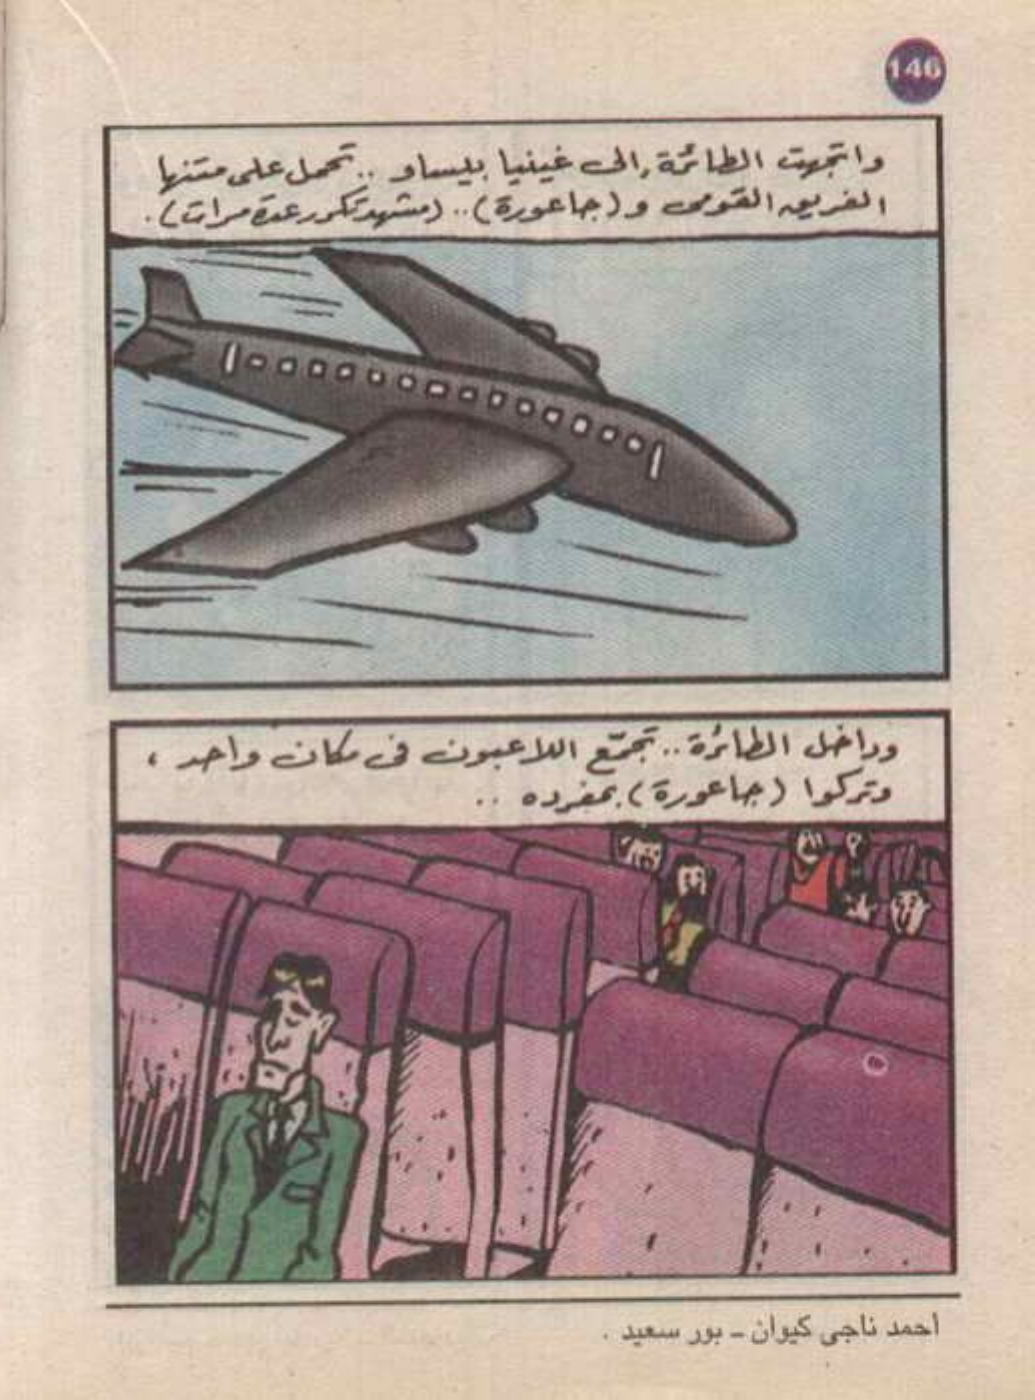 146
واتجهت الطائرة إلى غينيا بيساو .. تحمل على متنها
الفريق القومى و (جاعورة) .. (مشهد تكرر عدة مرات) .
وداخل الطائرة .. تجمّع اللاعبون فى مكان واحد ،
وتركوا (جاعورة) بمفرده ..
احمد ناجى كيوان - بور سعيد .